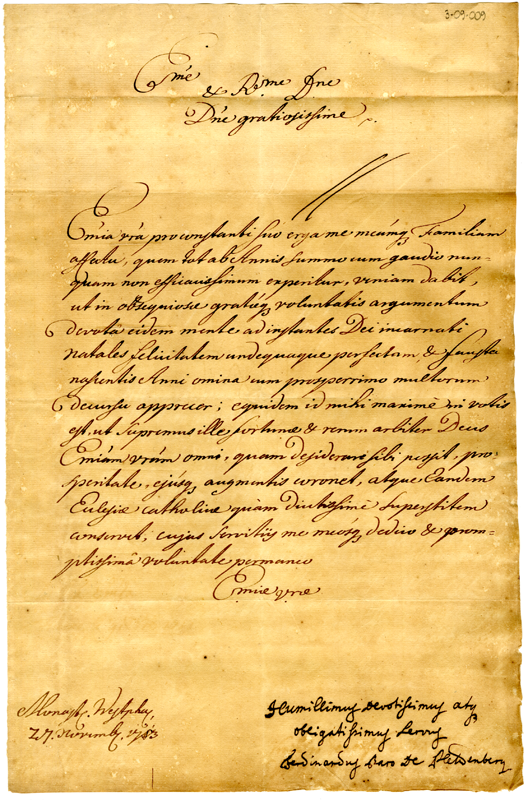 3-09-009
Emē
& Rme Dne
Dne gratiosissime
Emia vra pro constanti suo erga me meamq3 Familiam
affectu, quem tot ab Annis summo cum gaudio nun=
quam non efficacissimum experitur, veniam dabit,
ut in obsequiose gratiusq3 voluntatis argumentum
devotâ eidem mente ad instantes Dei incarnati
natales felicitatem undequaque perfectam, & fausta
nascentis Anni omina cum prosperrimo multorum
decursu apprecer; equidem id mihi maximè in votis
est, ut Supremus ille fortunæ & rerum arbiter Deus
Emiam vram omni, quam desiderare sibi possit, pro=
speritate, ejusq3 augmentis coronet, atque Eandem
Eclesiæ catholicæ quàm diutissimè superstitem
conservet; cujus servitiis me meosq3 dedico & prom=
ptissimâ voluntate permaneo
Emiæ vræ
Monast. Westphal.
27. Novemb.
Humillimus devotissimus atq3
obligatissimus servus
Ferdinandus Baro De Plettenberg